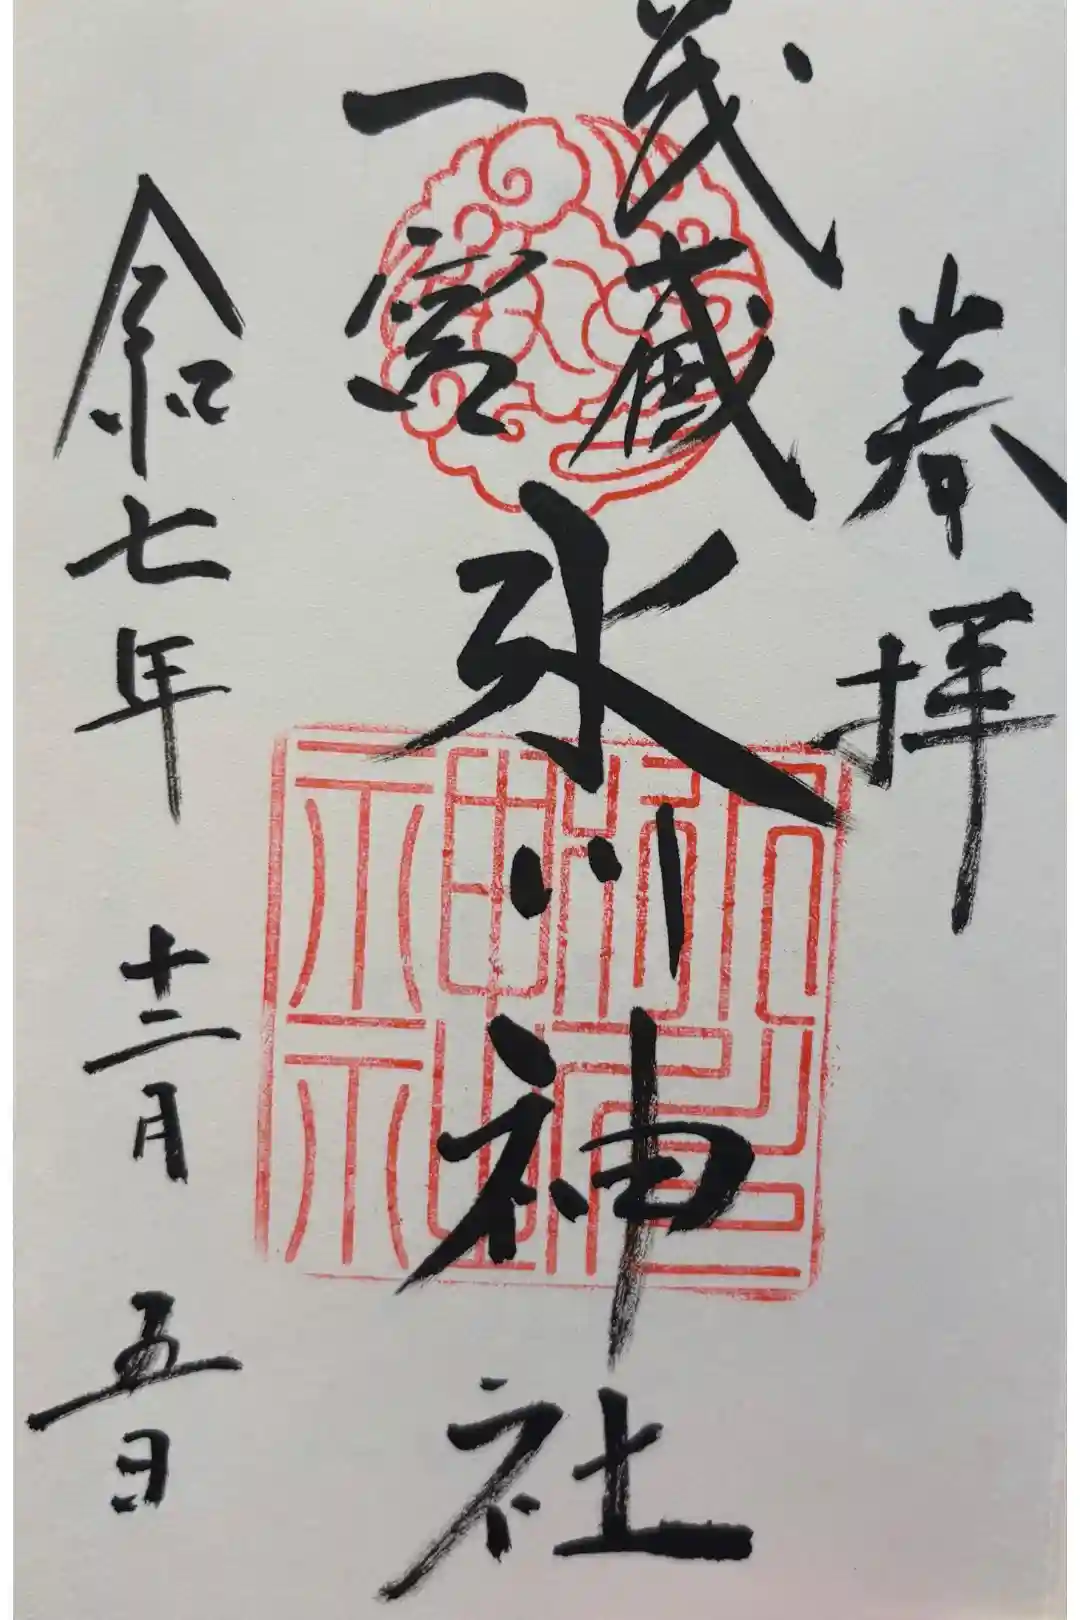 奉拝
武蔵
一宮
氷川神社
令和七年 十二月 五日